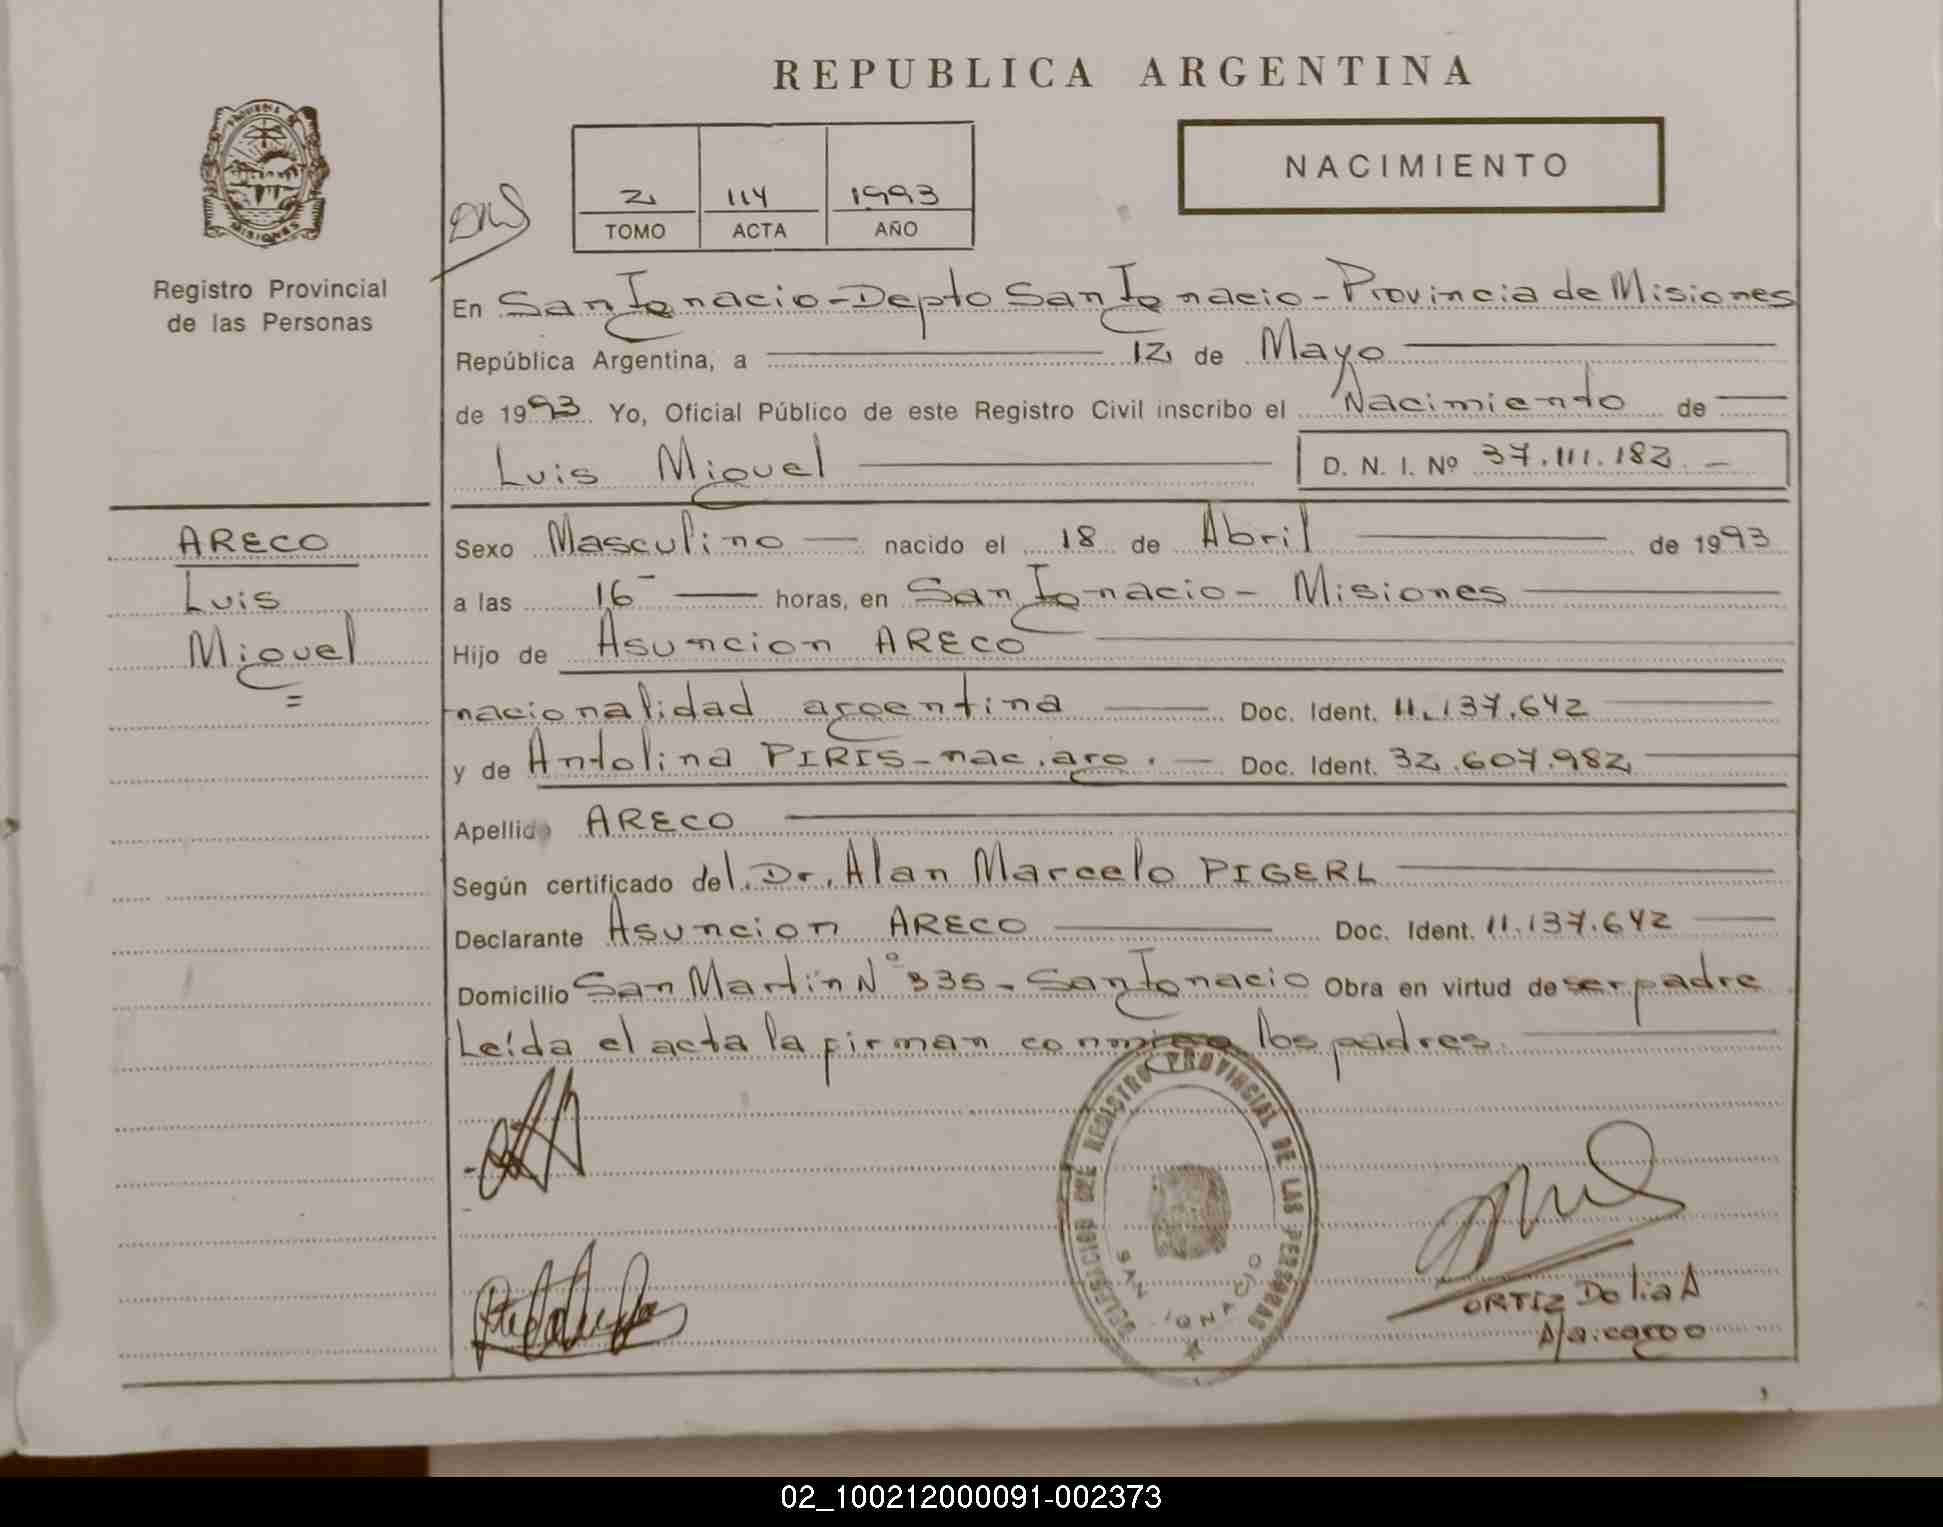 REPUBLICA ARGENTINA
PROVINCIA DE MISIONES
Registro Provincial
de las Personas
2 114 1993
TOMO ACTA AÑO
NACIMIENTO
En San Ignacio - Depto San Ignacio - Provincia de Misiones
República Argentina, a 12 de Mayo
de 1993. Yo, Oficial Público de este Registro Civil inscribo el Nacimiento de
Luis Miguel D. N. I. Nº 37.111.182 -
ARECO
Luis
Miguel
Sexo Masculino nacido el 18 de Abril de 1993
a las 16 horas, en San Ignacio - Misiones
Hijo de Asuncion ARECO
nacionalidad argentina Doc. Ident. 11.137.642
y de Antolina PIRIS - nac. arg. - Doc. Ident. 32.607.982
Apellido ARECO
Según certificado del Dr. Alan Marcelo PIGERL
Declarante Asuncion ARECO Doc. Ident. 11.137.642
Domicilio San Martín Nº 335 - San Ignacio Obra en virtud de ser padre
Leída el acta la firman conmigo los padres.
DELEGACION DEL REGISTRO PROVINCIAL DE LAS PERSONAS
SAN IGNACIO
ORTIZ Delia A
A/a. cargo
02_100212000091-002373